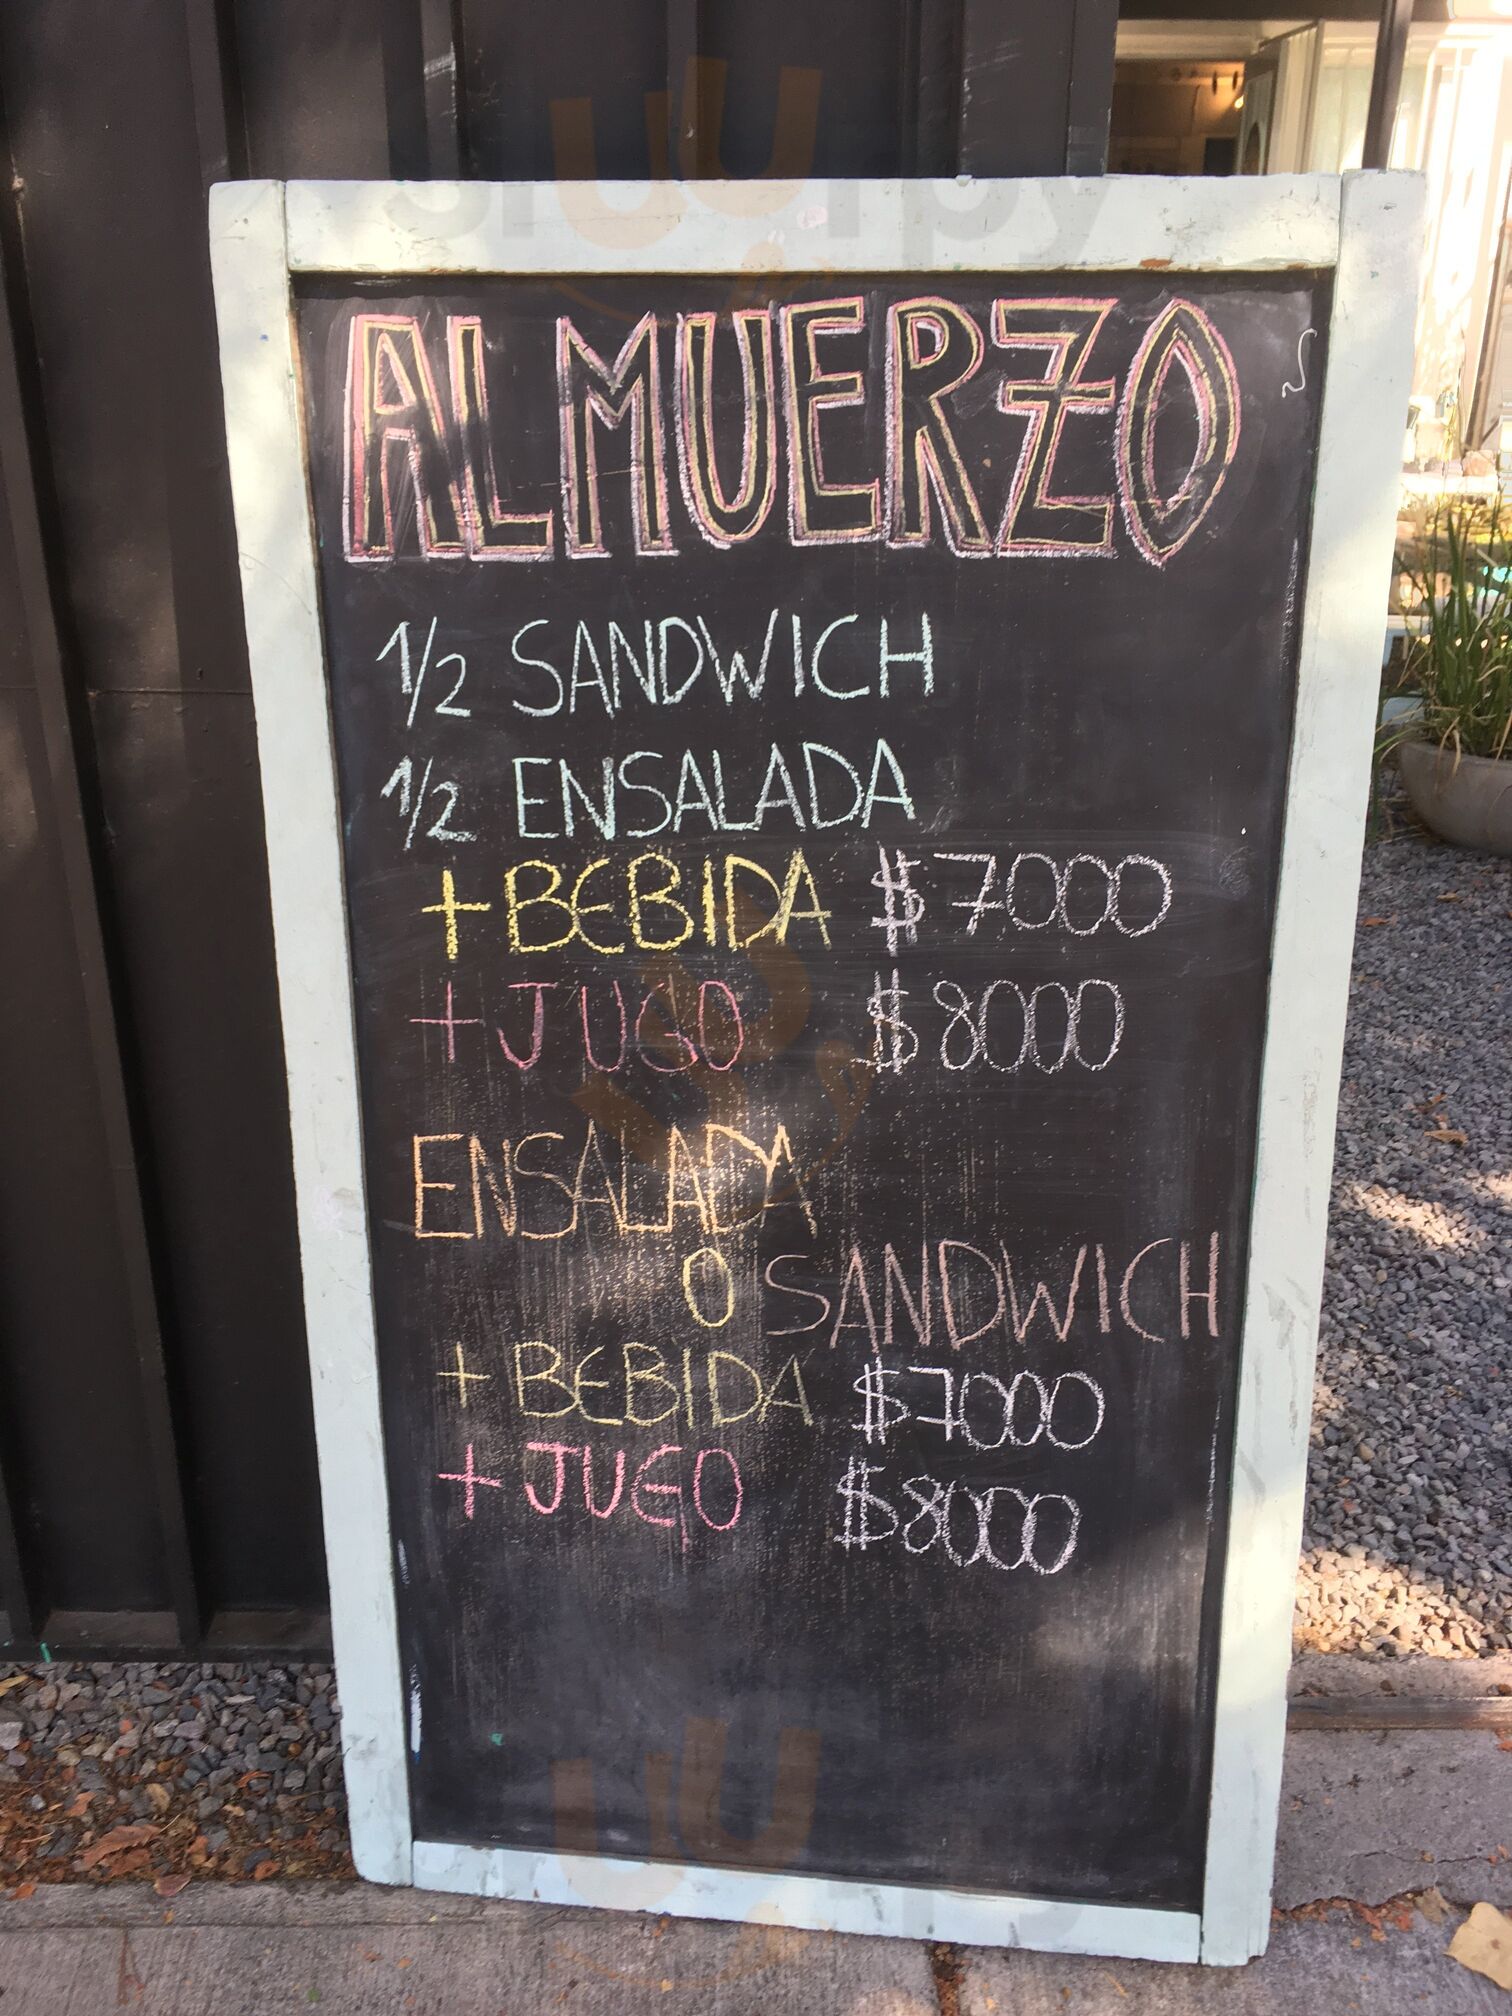 sluurpy
ALMUERZO
1/2 SANDWICH
1/2 ENSALADA
+ BEBIDA $ 7000
+ JUGO $ 8000
ENSALADA
O SANDWICH
+ BEBIDA $7000
+ JUGO $8000